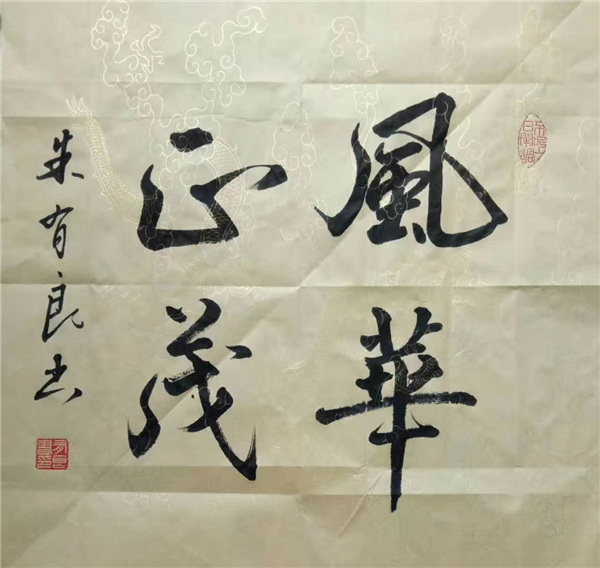 風華
正茂
朱有良书